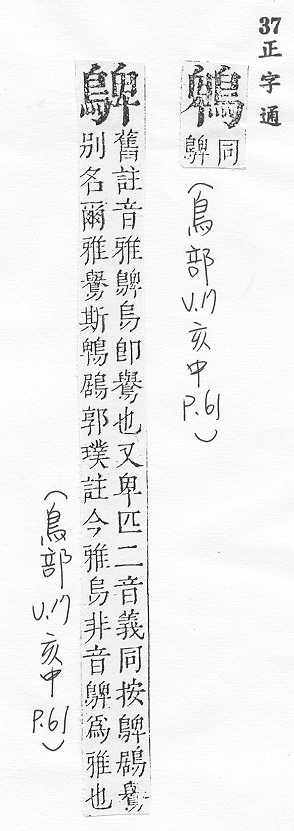 37正字通
鵯
同鼙
（鳥部 V.17 亥中 P.61）
鼙
舊註音雅鵯烏即鸒也又卑匹二音義同按鵯鶋鸒
別名爾雅鸒斯鵯鶋郭璞註今雅烏非音鵯為雅也
（鳥部 V.17 亥中 P.61）